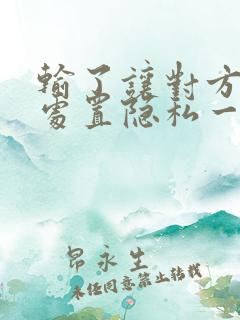 輸了讓對方
處置隐私一
昂永生
未经同意禁止转载